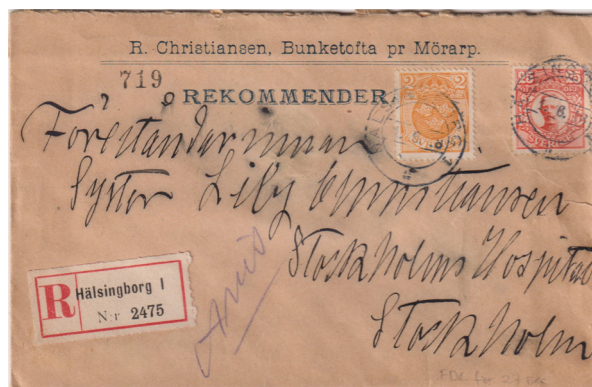 R. Christiansen, Bunketofta pr Mörarp.
719
REKOMMENDER
2
Föreståndarinnan
Syster Lily Christiansen
Stockholms Hospital
Stockholm
R Hälsingborg 1
Nr 2475